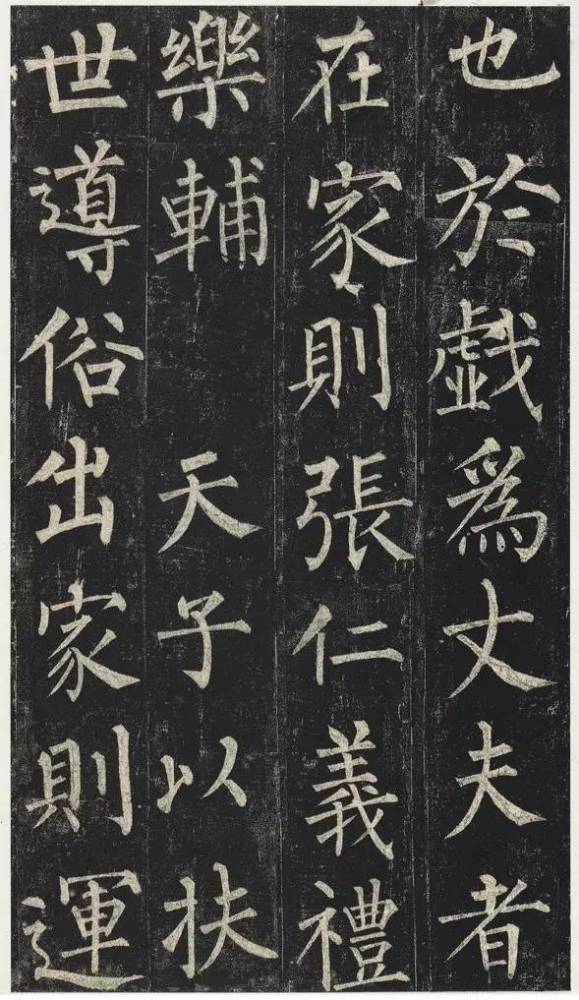 也於戲爲丈夫者
在家則張仁義禮
樂輔 天子以扶
世導俗出家則運